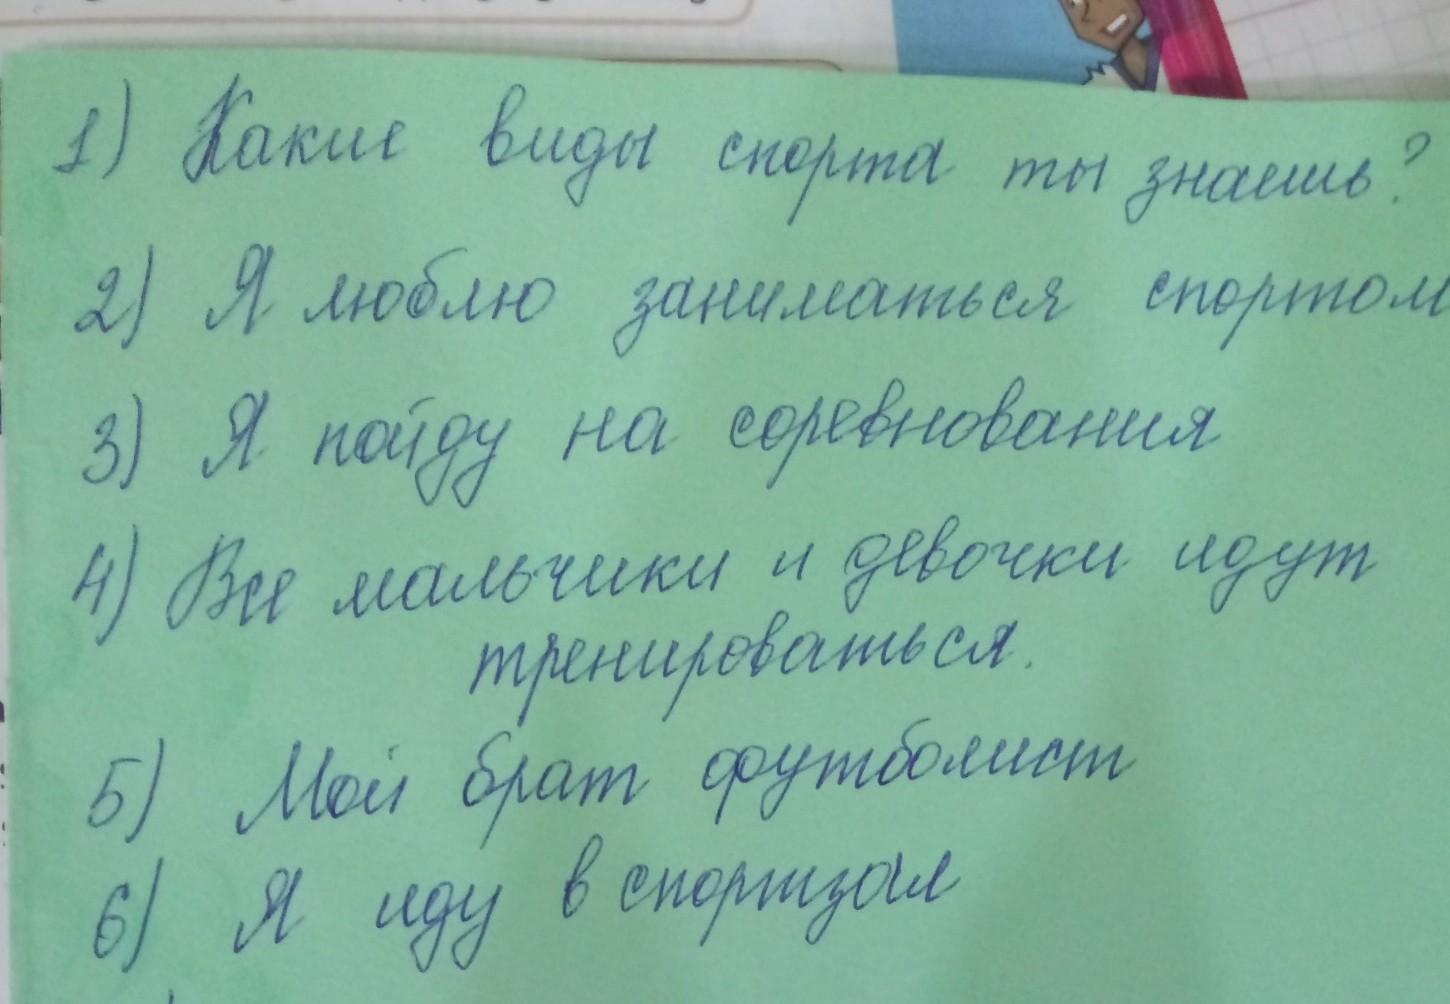 1) Какие виды спорта ты знаешь?
2) Я люблю заниматься спортом
3) Я пойду на соревнования
4) Все мальчики и девочки идут
тренироваться.
5) Мой брат футболист
6) Я иду в спортзал